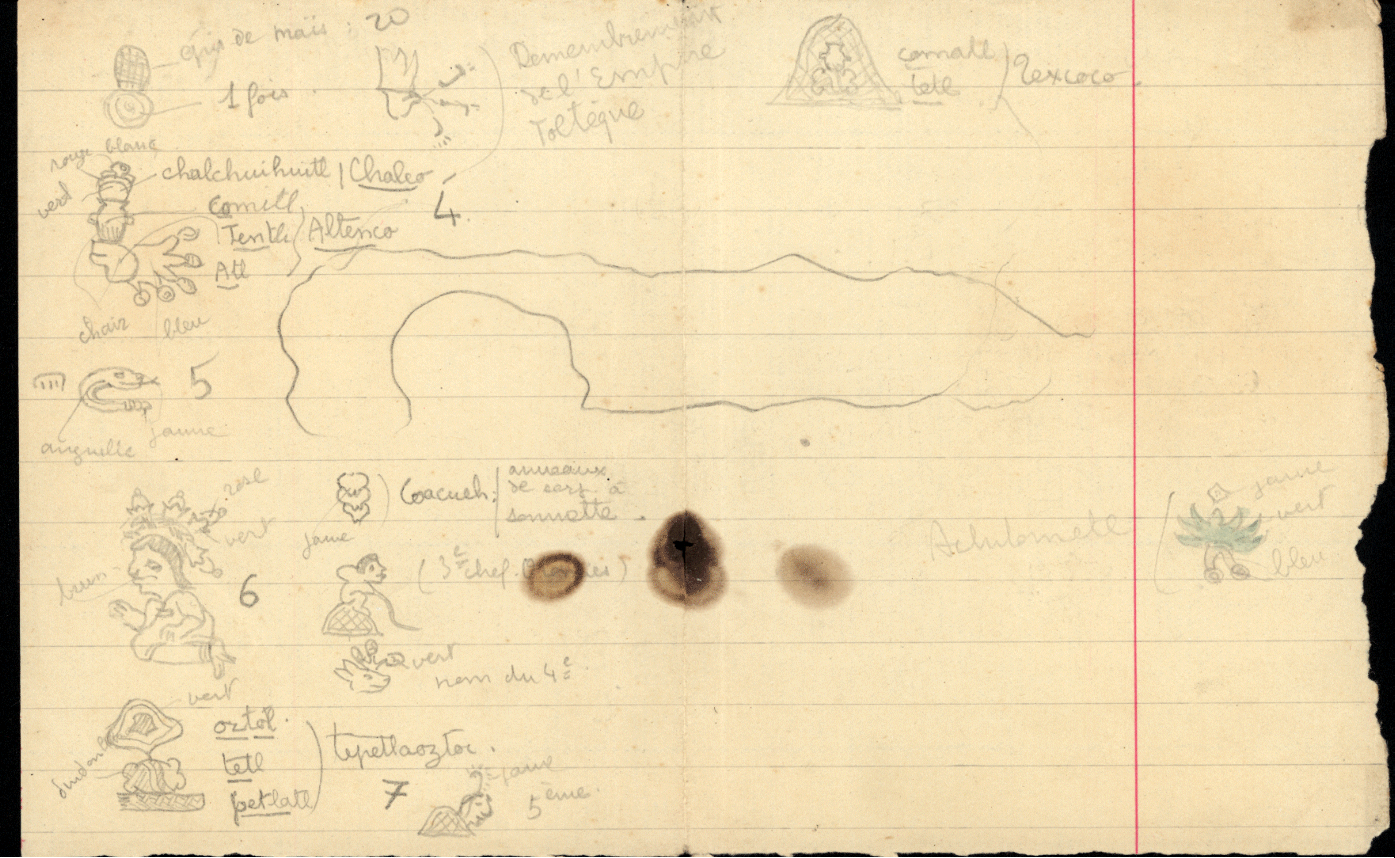 epis de maïs : 20
1 fois.
Demembrement
de l'Empire
Toltèque
comatl
tetl
Texcoco
rouge blanc
vert
chalchuihuitl | Chalco
4
Comitl
Tentli
Altenco
Atl
chair bleu
5
anguille
jaune
rose
vert
brun
6
jaune
Coacueh:
anneaux
de serp. à
sonnette.
(3e chef.
vert
nom du 4e.
jaune
vert
bleu
vert
oztol.
tetl
petlatl
tepetlaoztoc.
7
jaune
5ème.